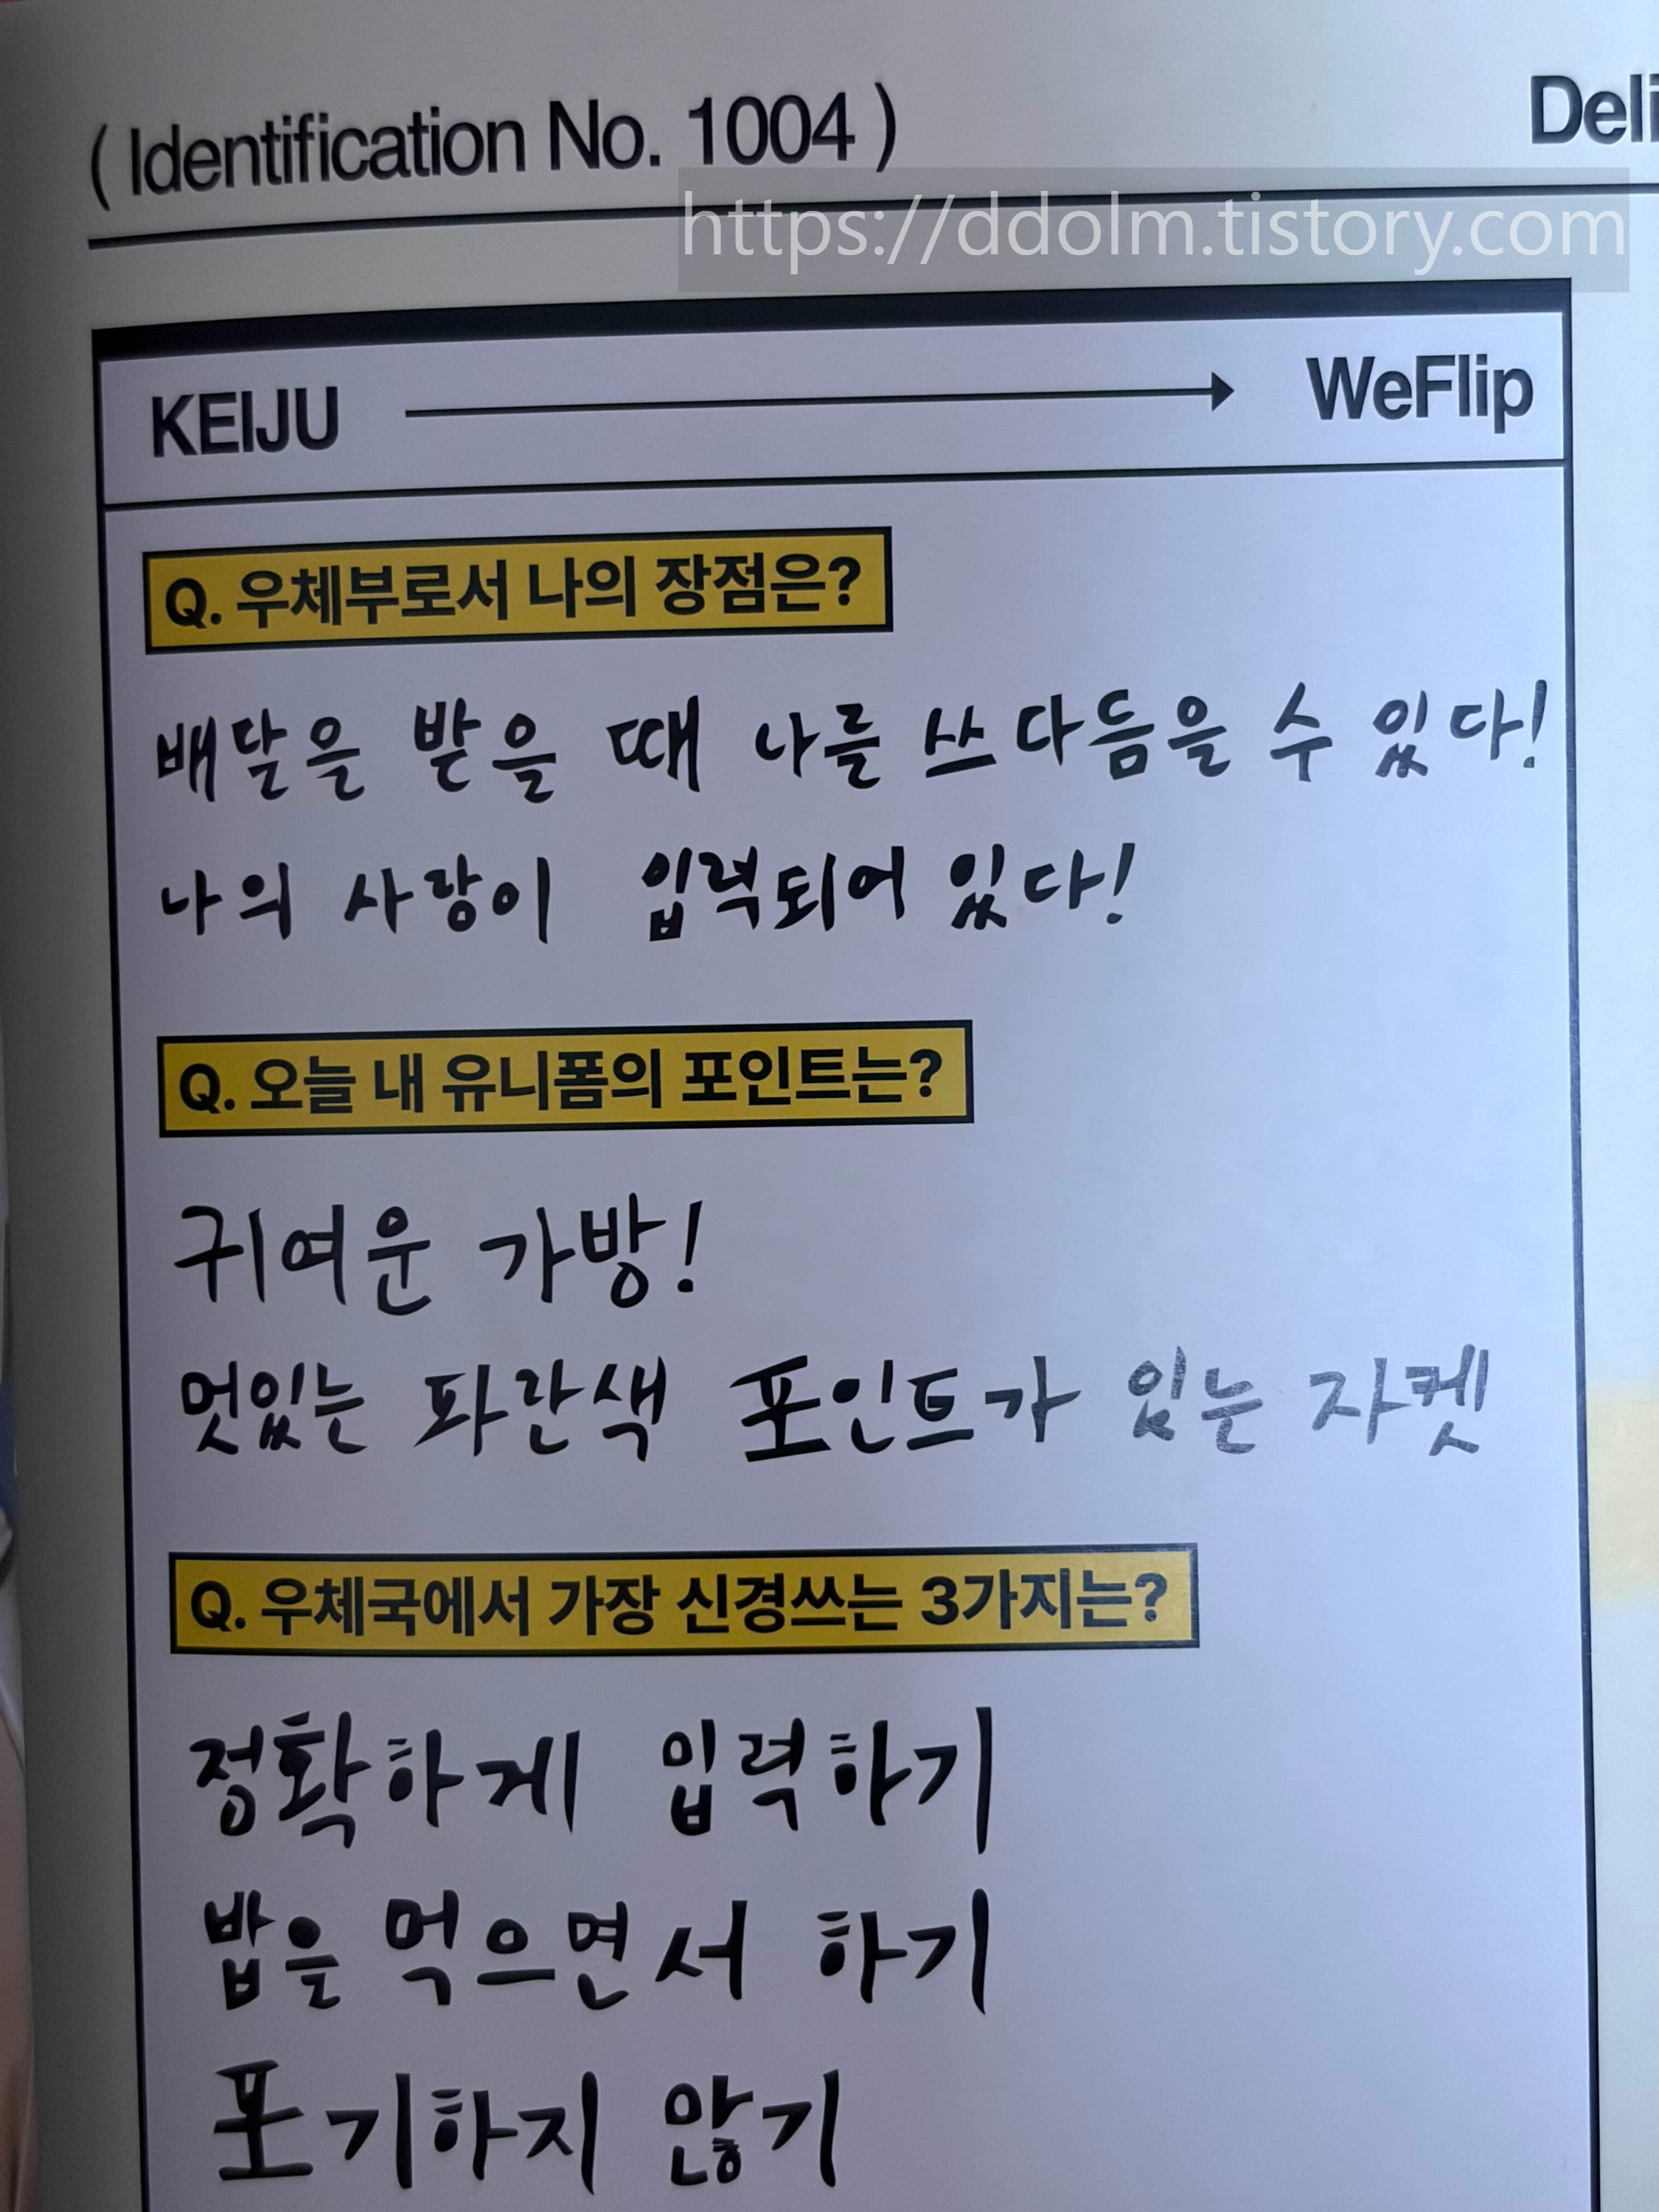 ( Identification No. 1004 )
https://ddolm.tistory.com
KEIJU → WeFlip
Q. 우체부로서 나의 장점은?
배달을 받을 때 나를 쓰다듬을 수 있다!
나의 사랑이 입력되어 있다!
Q. 오늘 내 유니폼의 포인트는?
귀여운 가방!
멋있는 파란색 포인트가 있는 자켓
Q. 우체국에서 가장 신경쓰는 3가지는?
정확하게 입력하기
밥을 먹으면서 하기
포기하지 않기